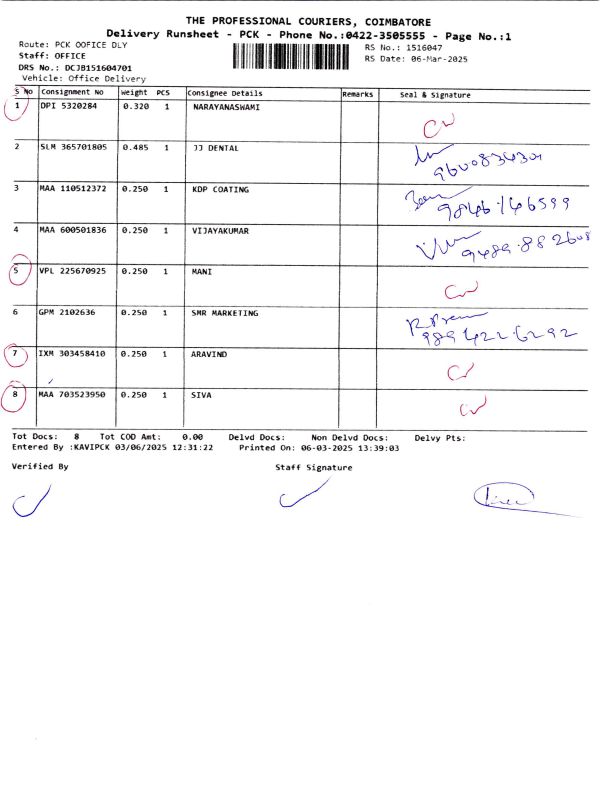 THE PROFESSIONAL COURIERS, COIMBATORE
Delivery Runsheet - PCK - Phone No.:0422-3505555 - Page No.:1
Route: PCK OOFICE DLY
RS No.: 1516047
Staff: OFFICE
RS Date: 06-Mar-2025
DRS No.: DCJB151604701
Vehicle: Office Delivery
S No Consignment No Weight PCS Consignee Details Remarks Seal & Signature
1 DPI 5320284 0.320 1 NARAYANASWAMI
2 SLM 365701805 0.485 1 JJ DENTAL
9600834301
3 MAA 110512372 0.250 1 KDP COATING
9846146599
4 MAA 600501836 0.250 1 VIJAYAKUMAR
9489.882608
5 VPL 225670925 0.250 1 MANI
6 GPM 2102636 0.250 1 SMR MARKETING
9894226292
7 IXM 303458410 0.250 1 ARAVIND
8 MAA 703523950 0.250 1 SIVA
Tot Docs: 8 Tot COD Amt: 0.00 Delvd Docs: Non Delvd Docs: Delvy Pts:
Entered By :KAVIPCK 03/06/2025 12:31:22 Printed On: 06-03-2025 13:39:03
Verified By Staff Signature